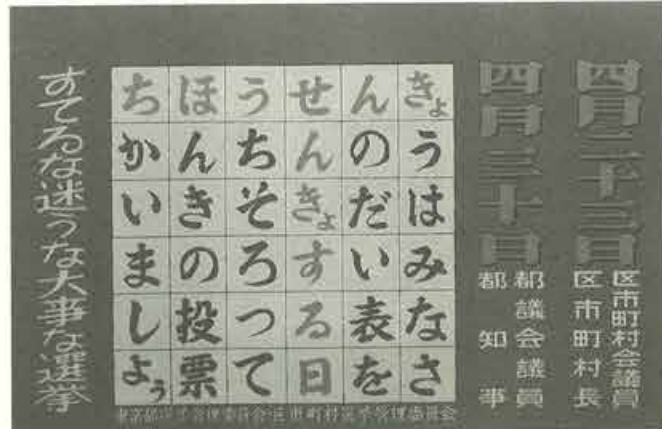 四月二十三日
区市町村会議員
区市町村長
四月三十日
都議会議員
都知事
きょうはみなさ
んのだい表を
せんきょする日
うちそろつて
ほんきの投票
ちかいましよう
すてるな迷うな大事な選挙
東京都選挙管理委員会・区市町村選挙管理委員会